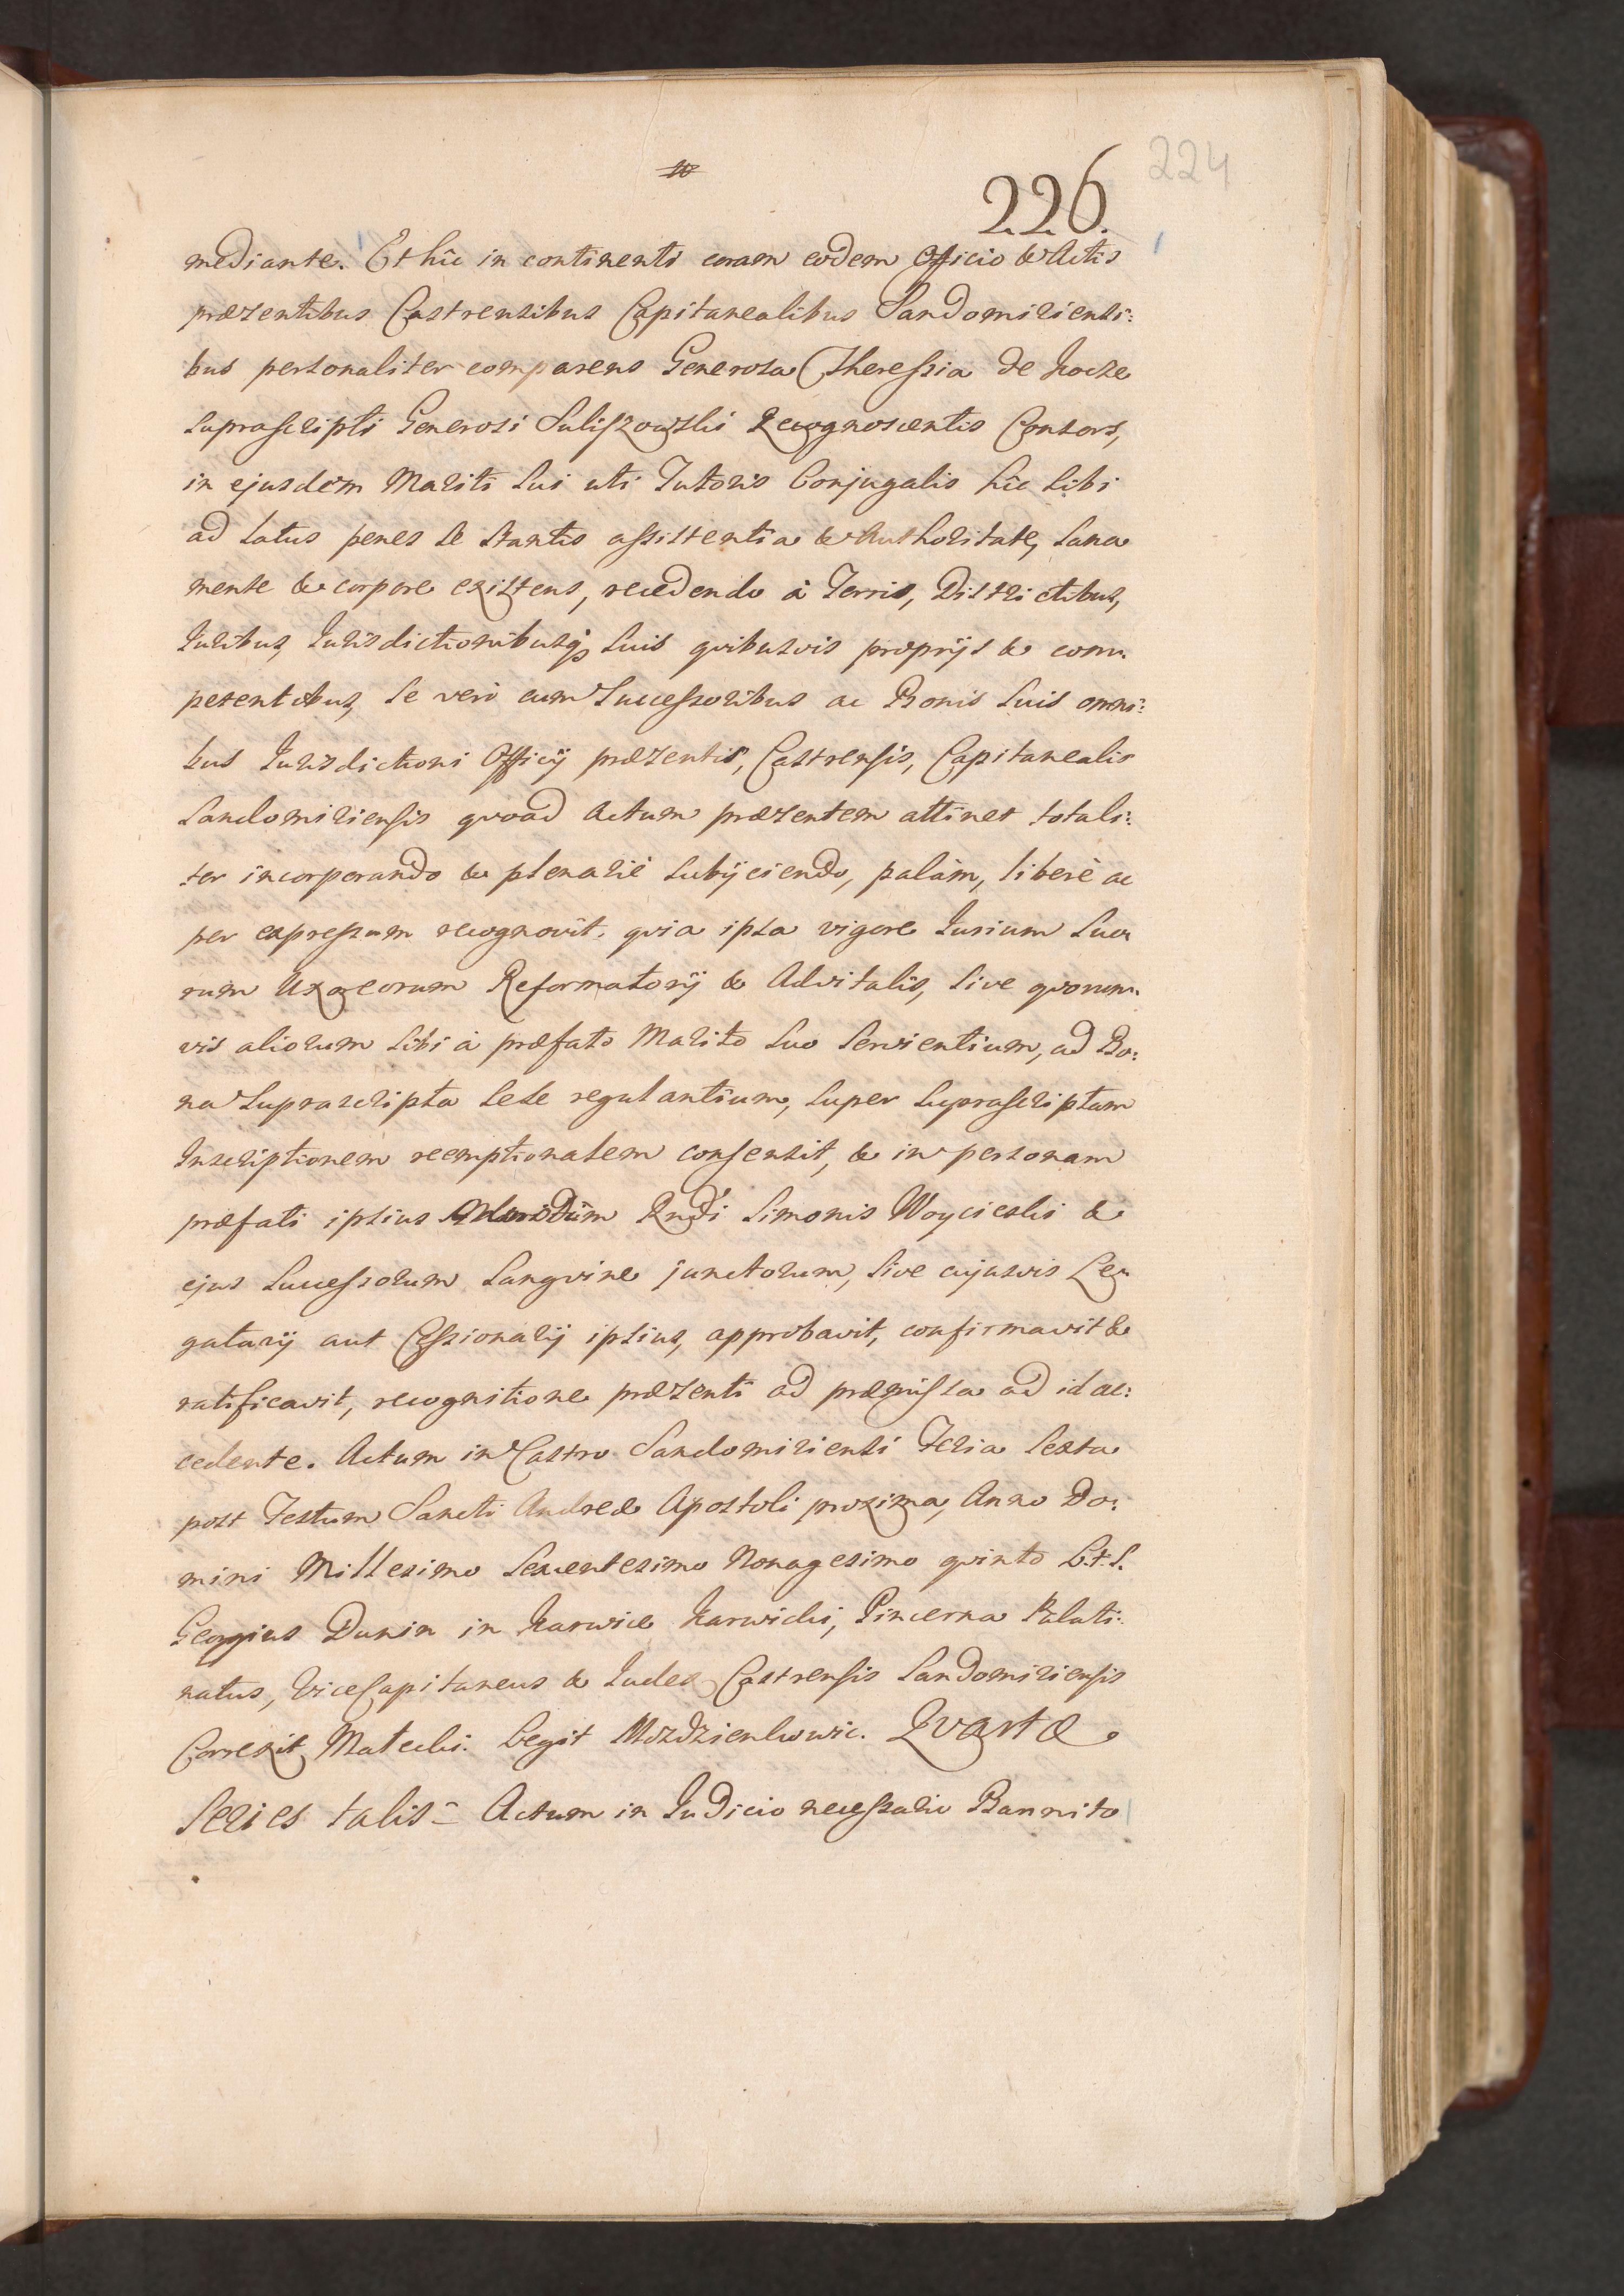 226.
224
mediante. Et hîc in continenti coram eodem Officio & Actis
præsentibus Castrensibus Capitanealibus Sandomiriensi:
bus personaliter comparens Generosa Theressia de
suprascripti Generosi Suliszowski Recognoscentis Consors,
in ejusdem Mariti sui uti Tutoris Conjugalis hîc sibi
ad latus penes se stantis assistentia & Authoritate, sana
mente & corpore existens, recedendo à Terris, Districtibus,
Iuribus, Iurisdictionibusq; suis quibusvis proprijs & com:
petentibus, se verò cum Successoribus ac Bonis suis omni:
bus Iurisdictioni Officij præsentis, Castrensis, Capitanealis
Sandomiriensis quoad Actum præsentem attinet totali:
ter incorporando & plenariè subijciendo, palàm, liberè ac
per expressum recognovit. quia ipsa vigore Iurium suo:
rum Uxoreorum Reformatorij & Advitalis, sive quorum:
vis aliorum sibi à præfato Marito suo servientium, ad Bo:
na suprascripta sese regulantium, super suprascriptam
Inscriptionem reemptionalem consensit, & in personam
præfati ipsius Rndi Simonis Woycieski &
ejus Successorum Sangvine junctorum, sive cujusvis Le:
gatarij aut Cessionarij ipsius, approbavit, confirmavit &
ratificavit, recognitione præsenti ad præmissa ad id ac:
cedente. Actum in Castro Sandomiriensi Feria Sexta
post Festum Sancti Andreæ Apostoli proxima, Anno Do:
mini Millesimo Sexcentesimo Nonagesimo quinto L.+S.
Georgius Dunin in Karwice Karwicki, Pincerna Palati:
natus, ViceCapitaneus & Iudex Castrensis Sandomiriensis
Correxit Malecki. Legit Mozdzienkowic. Qvartæ
Series talis = Actum in Iudicio necessario Bannito